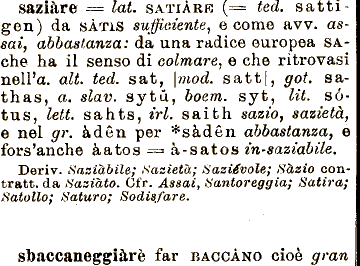 saziàre = lat. SATIÀRE (= ted. satti-
gen) da SÀTIS sufficiente, e come avv. as-
sai, abbastanza: da una radice europea SA-
che ha il senso di colmare, e che ritrovasi
nell'a. alt. ted. sat, |mod. satt|, got. sa-
thas, a. slav. sytŭ, boem. syt, lit. só-
tus, lett. sahts, irl. saith sazio, sazietà,
e nel gr. àdên per *sàdên abbastanza, e
fors'anche àatos = à-satos in-saziabile.
Deriv. Saziàbile; Sazietà; Saziévole; Sàzio con-
tratt. da Saziàto. Cfr. Assai, Santoreggia; Satira;
Satollo; Saturo; Sodisfare.
sbaccaneggiàrè far BACCÀNO cioè gran